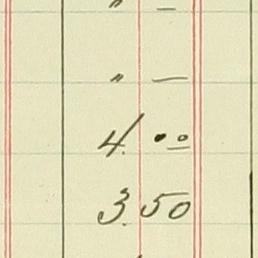 " —
" —
4.00
3.50